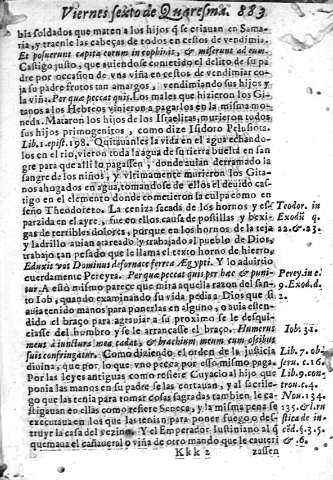 Viernes sexto de Quaresma. 883
bis soldados que maten a los hijos q̃ se criauan en Sama-
ria, y traenle las cabeças de todos en cestos de vendimia.
Et posuerunt capita eorum in cophinis, & miserunt ad eum.
Castigo justo, que auiendose cometido el delito de su pa
dre por occasion de vna viña en cestos de vendimiar co-
ja su padre frutos tan amargos, vendimiando sus hijos y
la viña. Per que peccas quis. Los males que hizieron los Gita-
nos a los Hebreos vinieron a pagarlos en la misma mo-
neda. Mataron los hijos de los Israelitas, murieron todos
sus hijos primogenitos, como dize Isidoro Pelusiota.
Lib. 1. epist. 198. Quitauanles la vida en el agua echando-
los en el rio, vieron toda la agua de su tierra buelta en san
gre para que alli lo pagassen, donde auian derramado la
sangre de los niños, y vltimamente murieron los Gita-
nos ahogados en agua, tomandose de ellos el deuido cas-
tigo en el elemento donde cometieron la culpa como en-
seño Theodoreto. La ceniza sacada de los hornos y es-
parzida en el ayre, fue en ellos causa de postillas y bexi-
gas de terribles dolores, porque en los hornos de la teja
y ladrillo auian atareado y trabajado al pueblo de Dios,
trabajo tan pesado que le llama el texto horno de hierro,
Eduxit vos Dominus de fornace ferrea Ægypti. Y lo aduirtio
cuerdamente Pereyra. Per que peccas quis per hæc & puni-
tur. A esto mismo parece que mira aquella razon del san-
to Iob, quando examinando su vida pedia a Dios que si
auia tenido manos para ponerlas en alguno, o auia esten-
dido el braço para agrauiar a su proximo se le desqui-
ciasse del hombro y se le arrancasse el braço. Humerus
meus à iunctura mea cadat, & brachium meum cum ossibus
suis confringatur. Como diziendo el orden de la justicia
diuina, que por lo que vno pecca por esso mismo paga.
Por las leyes antiguas como refiere Cuyacio al hijo que
ponia las manos en su padre se las cortauan, y al sacrile-
go que las tenia para tomar cosas sagradas tambien le ca-
stigauan en ellas como refiere Seneca, y la misma pena se
executaua en los que las tenian para poner fuego o des-
truyr la casa del vezino. Y el Emperador Iustiniano al q̃
quemaua el cañaueral o viña de otro mando que le cauteri
Kkk 2 zassen
Teodor. in
Exodũ q.
22. & 23.
Perey. in c.
9. Exod. d.
2.
Iob. 31.
Lib. 7. ob-
seru. c. 16.
Lib. 9. con-
trou. c. 4.
Nou. 134.
135. & l. rn
stica de in
cẽd. §. 3. 5.
& 6.